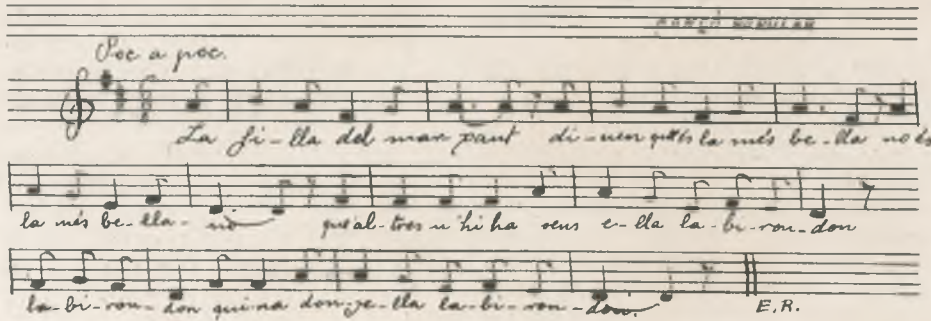 CANÇÓ POPULAR
Poc a poc.
La fi-lla del mar-xant di-uen qu'és la més be-lla no és
la més be-lla- no que al-tres n'hi ha sens e-lla la-bi-ron-don
la-bi-ron-don quina don-ze-lla la-bi-ron-don.
E.R.